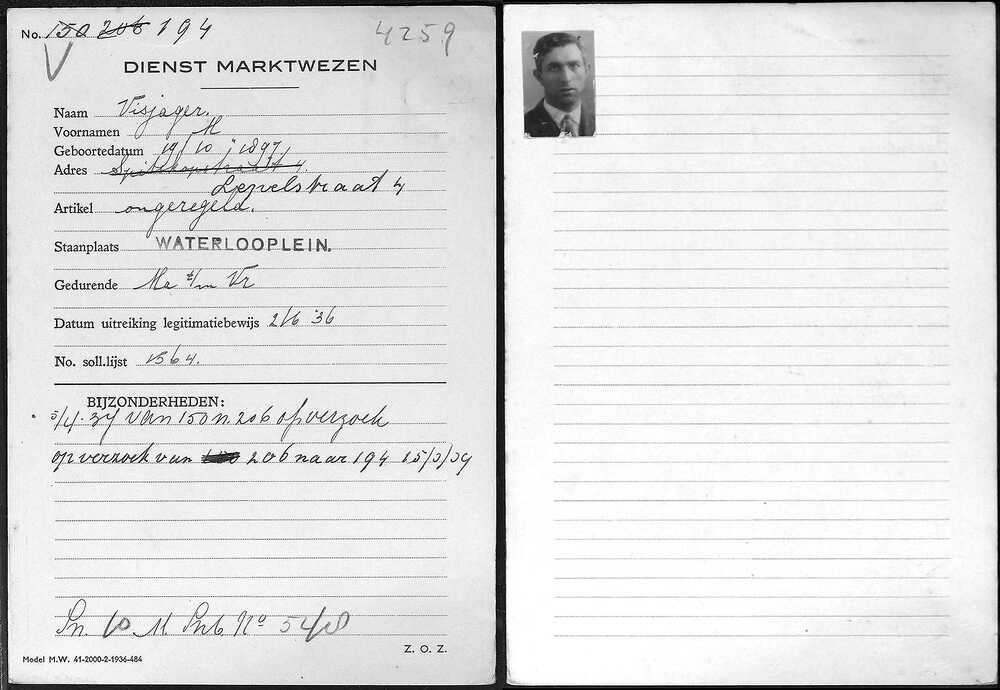 No. 150 206 194
4259
DIENST MARKTWEZEN
Naam Visjager.
Voornamen M
Geboortedatum 19/10 1897
Adres Spitskopstraat 4
Lepelstraat 4
Artikel ongeregeld.
Staanplaats WATERLOOPLEIN.
Gedurende Ma t/m Vr
Datum uitreiking legitimatiebewijs 2/6 '36
No. soll.lijst 1564.
BIJZONDERHEDEN:
5/4.37 van 150 n. 206 op verzoek
op verzoek van 206 naar 194 15/3/39
M No 5410
Z. O. Z.
Model M.W. 41-2000-2-1936-484